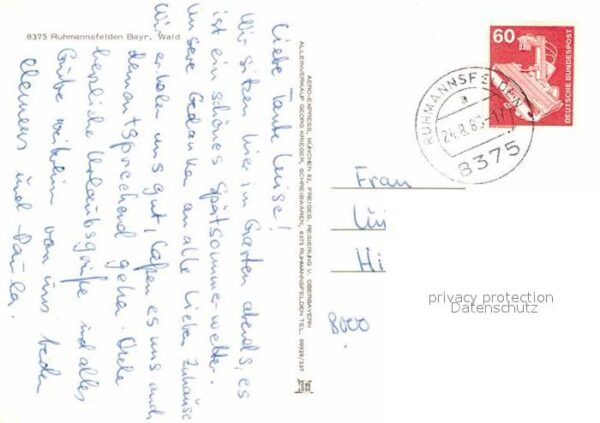 8375 Ruhmannsfelden Bayr. Wald
Liebe Tante Luise!
Wir sitzen hier im Garten abends, es
ist ein schönes Spätsommerwetter.
Unsere Gedanken an alle Lieben Zuhause
Wir erholen uns gut, laßen es uns auch
dementsprechend gehen. Viele
herzliche Urlaubsgrüße und alles
Gute weiterhin von uns beiden
Clemens und Paula.
AERO-EXPRESS, MÜNCHEN 82, FREIGEG. REGIERUNG V. OBERBAYERN
ALLEINVERKAUF GEORG KRIEGER, SCHREIBWAREN, 8375 RUHMANNSFELDEN TEL. 09929/337
60
DEUTSCHE BUNDESPOST
RUHMANNSFELDEN
a
24.8.83-17
8375
Frau
Lui
Hi
8000
privacy protection
Datenschutz